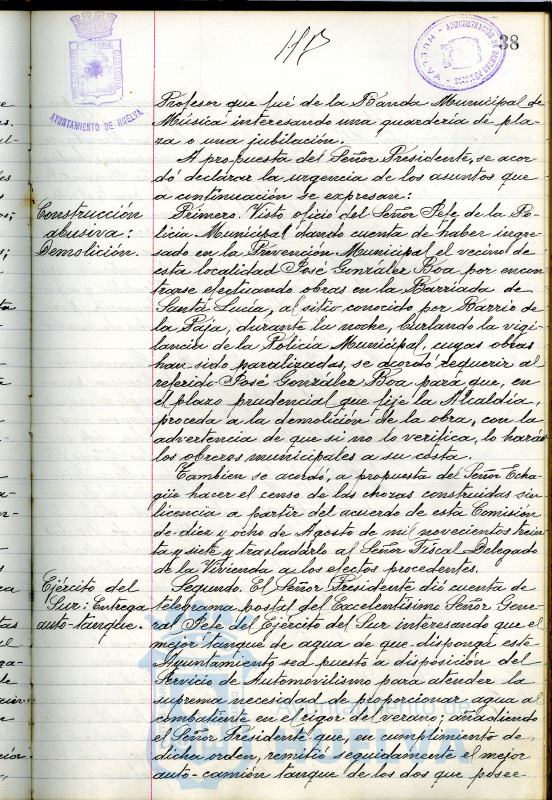 38
AYUNTAMIENTO DE HUELVA
Profesor que fué de la Banda Municipal de
Música interesando una guardería de pla-
za o una jubilación.
A propuesta del Señor Presidente, se acor-
dó declarar la urgencia de los asuntos que
a continuación se expresan:
Construcción
abusiva:
Demolición.
Primero. Visto oficio del Señor Jefe de la Po-
licía Municipal dando cuenta de haber ingre-
sado en la Prevención Municipal el vecino de
esta localidad José González Boa por encon
trarse efectuando obras en la Barriada de
Santa Lucía, al sitio conocido por Barrio de
la Paja, durante la noche, burlando la vigi-
lancia de la Policía Municipal, cuyas obras
han sido paralizadas, se acordó requerir al
referido José González Boa para que, en
el plazo prudencial que fije la Alcaldía,
proceda a la demolición de la obra, con la
advertencia de que si no lo verifica, lo harán
los obreros municipales a su costa.
Tambien se acordó, a propuesta del Señor Echa-
güe hacer el censo de las chozas construidas sin
licencia a partir del acuerdo de esta Comisión
de diez y ocho de Agosto de mil novecientos trein
ta y siete y trasladarlo al Señor Fiscal Delegado
de la Vivienda a los efectos procedentes.
Ejército del
Sur: Entrega
auto-tanque.
Segundo. El Señor Presidente dió cuenta de
telegrama postal del Excelentísimo Señor Gene-
ral Jefe del Ejército del Sur interesando que el
mejor tanque de agua de que disponga este
Ayuntamiento sea puesto a disposición del
Servicio de Automóvilismo para atender la
suprema necesidad de proporcionar agua al
combatiente en el rigor del verano; añadiendo
el Señor Presidente que, en cumplimiento de
dicha orden, remitió seguidamente el mejor
auto-camión tanque de los dos que posee
Ayuntamiento de
HUELVA